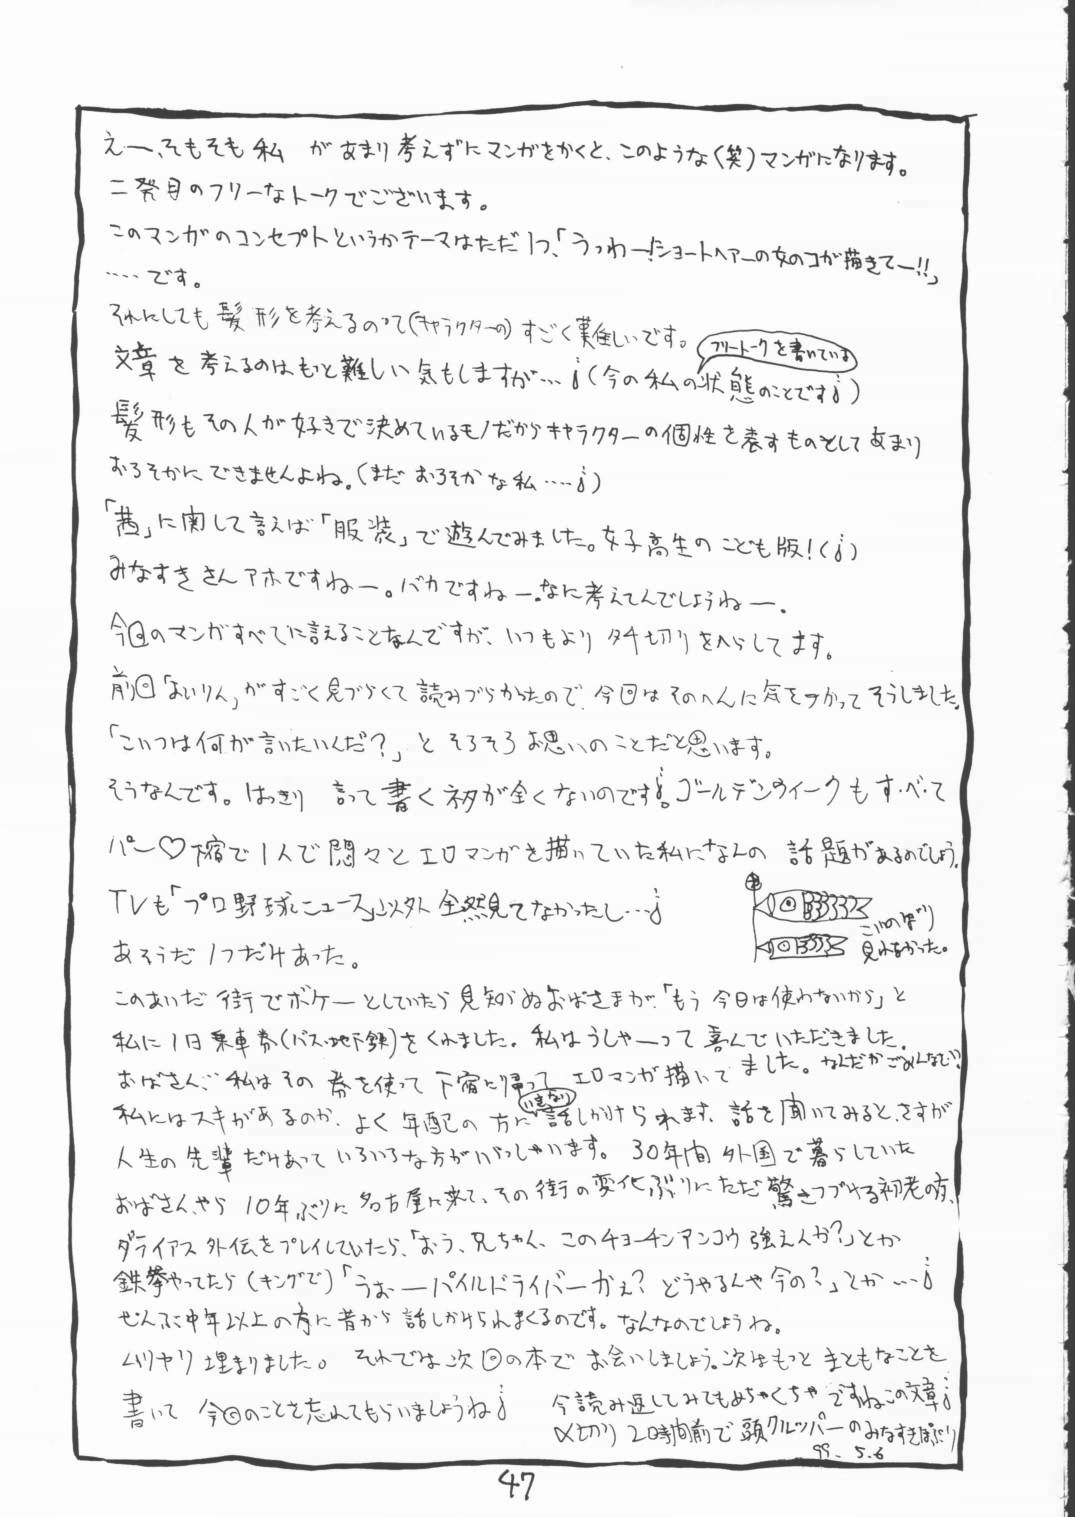 えー、そもそも私　があまり考えずにマンガをかくと、このような(笑)マンガになります。
二発目のフリーなトークでございます。
このマンガのコンセプトというかテーマはただ1つ、「うっわー!ショートヘアーの女のコが描きてー!!」
‥‥です。
それにしても髪形を考えるのって(キャラクターの)すごく難しいです。
フリートークを書いている
文章を考えるのはもっと難しい気もしますが…(今の私の状態のことです)
髪形もその人が好きで決めているモノだからキャラクターの個性を表すものとしてあまり
おろそかにできませんよね。(まだおろそかな私‥‥)
「茜」に関して言えば「服装」で遊んでみました。女子高生のこども版!()
みなすきさんアホですねー。バカですねー。なに考えてんでしょうねー.
今回のマンガすべてに言えることなんですが、いつもよりタチ切りをへらしてます。
前回「まいりん」がすごく見づらくて読みづらかったので、今回はそのへんに気をつかってそうしました。
「こいつは何が言いたいんだ?」とそろそろお思いのことだと思います。
そうなんです。はっきり　言って書くネタが全くないのです。ゴールデンウィークもす・べ・て
パー♡下宿で1人で悶々とエロマンガを描いていた私になんの　話題があるのでしょう。
TVも「プロ野球ニュース」以外全然見てなかったし…
こいのぼり
見れなかった。
あそうだ1つだけあった。
このあいだ街でボケーとしていたら見知らぬおばさまが、「もう今日は使わないから」と
私に1日乗車券(バス・地下鉄)をくれました。私はうしゃーって喜んでいただきました。
おばさん、私はその券を使って下宿に帰ってエロマンガ描いてました。なんだかごめんなさい
私にはスキがあるのか、よく年配の方にいきなり話しかけられます、話を聞いてみると、さすが
人生の先輩だけあっていろいろな方がいらっしゃいます。30年間外国で暮らしていた
おばさんやら10年ぶりに名古屋に来て、その街の変化ぶりにただ驚きつづける初老の方、
ダライアス外伝をプレイしていたら、「おう、兄ちゃん、このチョーチンアンコウ強えんか?」とか
鉄拳やってたら(キングで)「うおーーパイルドライバーかぇ?どうやるんや今の?」とか…
ぜんぶ中年以上の方に昔から話しかけられまくるのです。なんなのでしょうね。
ムリヤリ埋まりました。それでは次回の本でお会いしましょう。次はもっとまともなことを
書いて　今回のことを忘れてもらいましょうね
今読み返してみてもめちゃくちゃですねこの文章
〆切り2時間前で頭クルッパーのみなすきぽぷり
99. 5.6
47